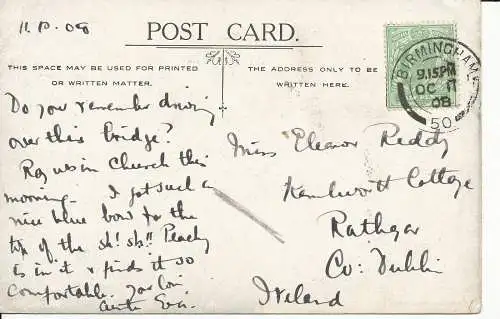 11.10.08
POST CARD.
THIS SPACE MAY BE USED FOR PRINTED
OR WRITTEN MATTER.
THE ADDRESS ONLY TO BE
WRITTEN HERE.
BIRMINGHAM
9.15PM
OC 11
08
50
Do you remember driving
over this bridge?
in Church this
morning – I got such a
nice blue bow for the
top of the sh! sh!! Peachy
is in it & finds it so
comfortable. your
Miss Eleanor Reddy
Kenilworth Cottage
Rathgar
Co: Dublin
Ireland